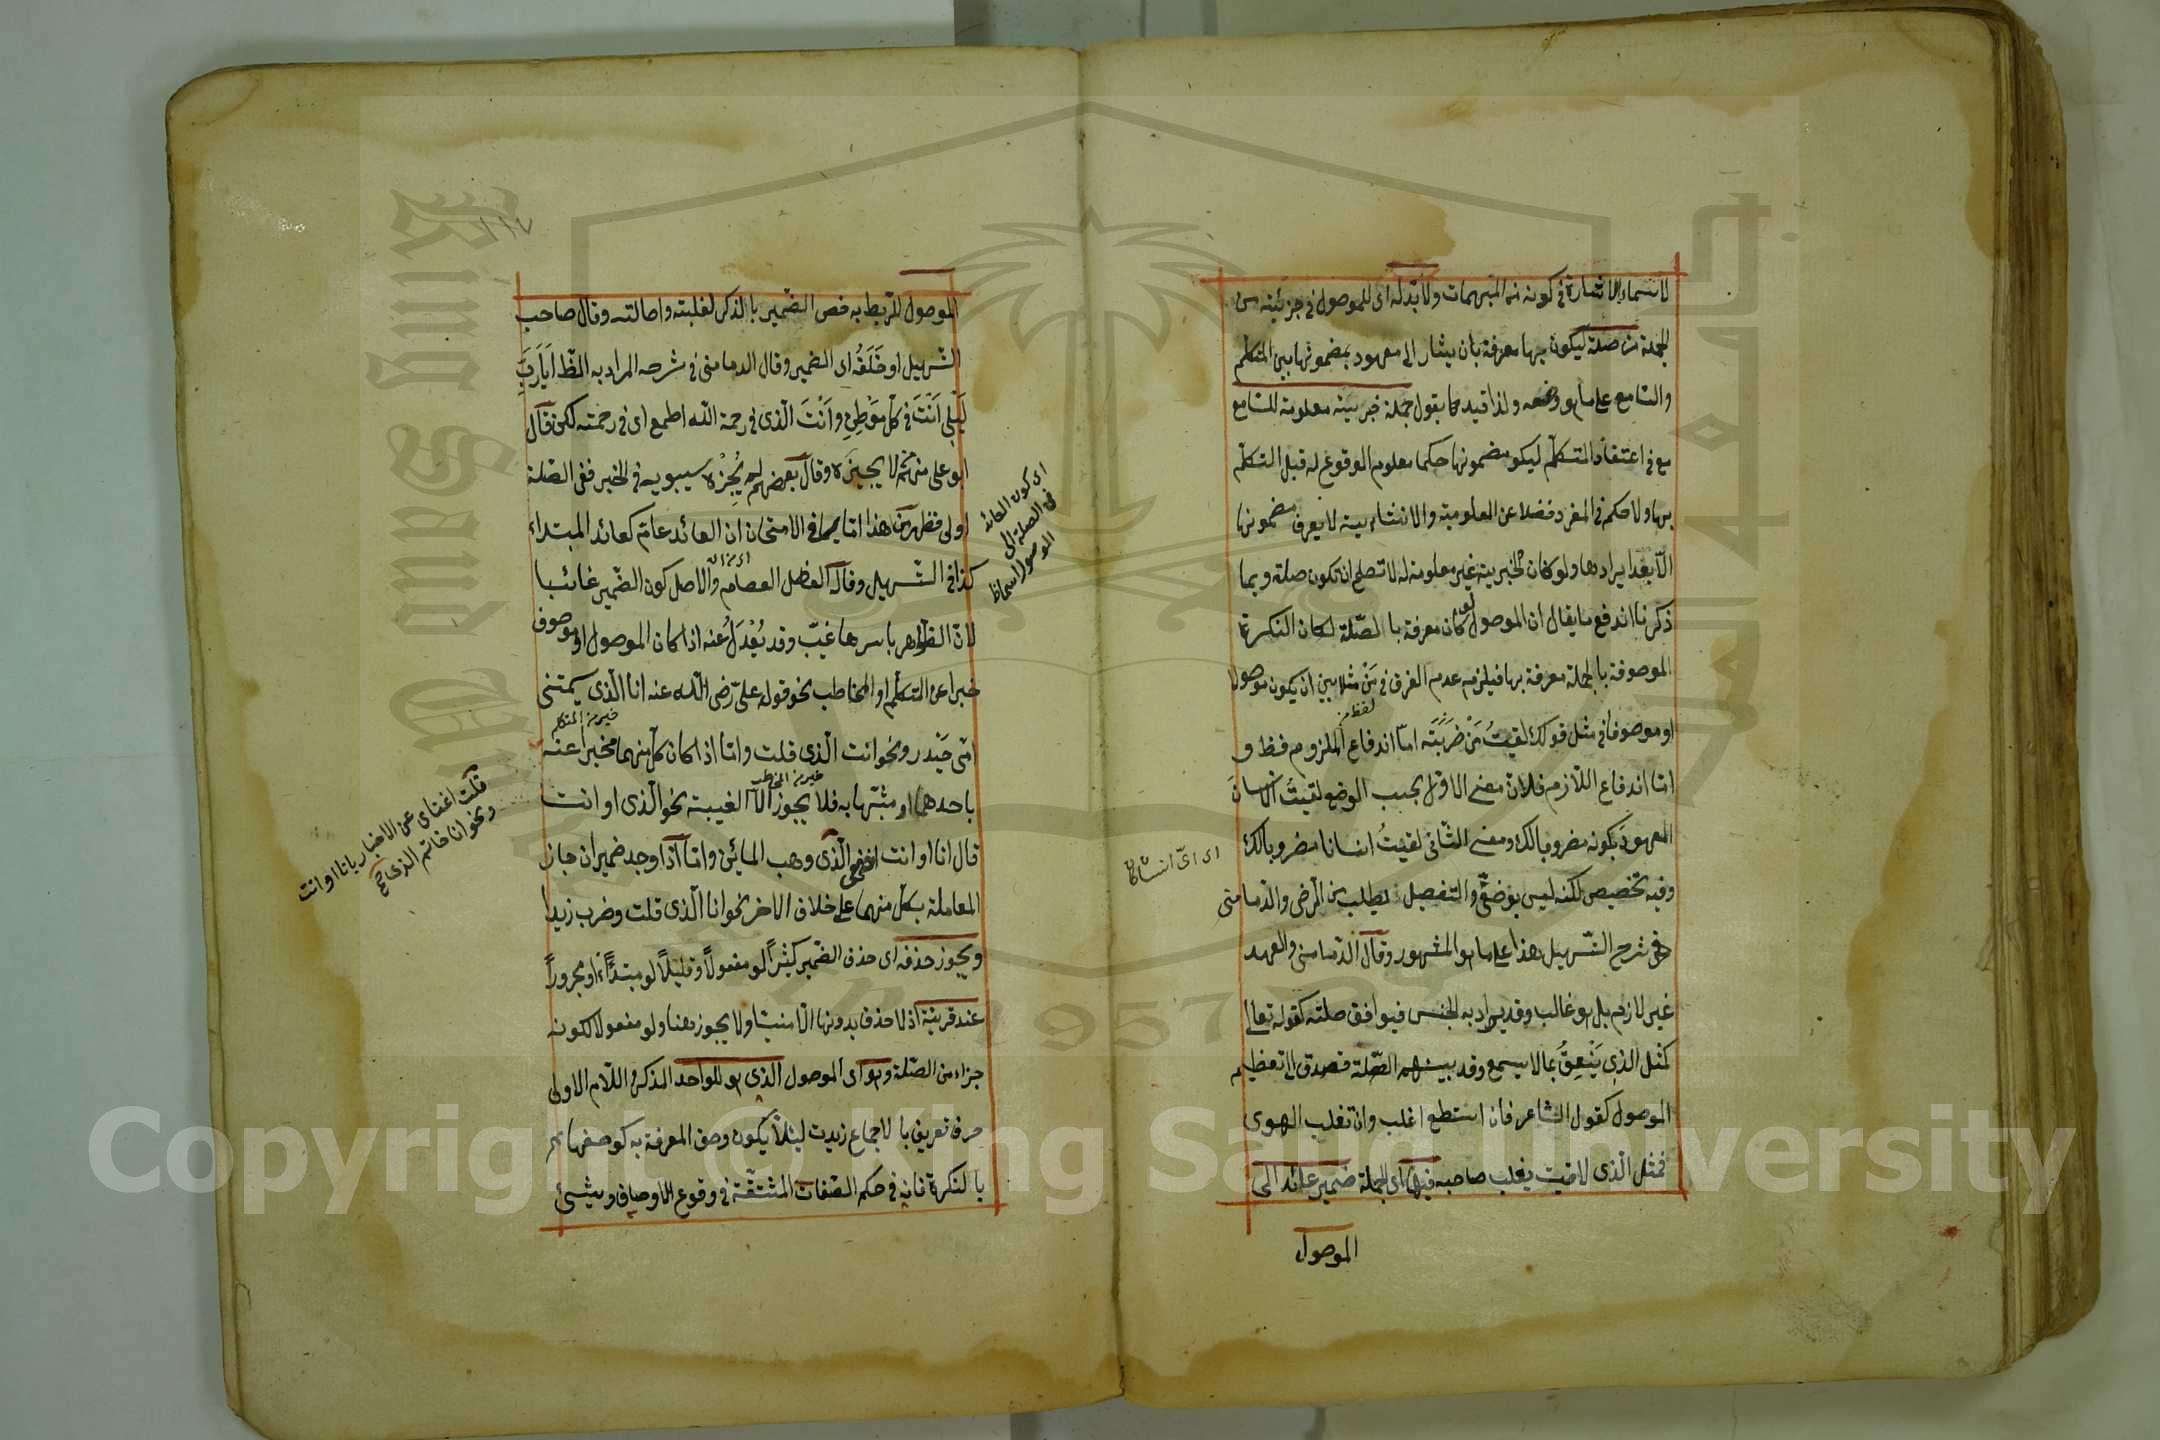 لاسماء الاشارة في كونه من المبهمات ولا بد له اى للموصول في جزئيته من
الجملة من صلة ليكون بها معرفة بان يشار الى معهود بمضمونها بين المتكلم
والسامع على ما هو وضعه ولذا قيد كما يقول جملة خبرية معلومة للسامع
مع في اعتقاد المتكلم ليكو مضمونها حكما معلوم الوقوع له قبل التكلم
بها ولا حكم في المفرد فضلا عن المعلومية والانشائية لا يعرف مضمونها
الا بعد ايرادها ولو كان الخبرية غير معلومة له لا تصلح ان تكون صلة وبما
ذكرنا اندفع ما يقال ان الموصول لو كان معرفة بالصلة لكان النكرة
الموصوفة بالجملة معرفة بها فيلزم عدم الفرق في مَنْ مثلا بين ان يكون موصولا
او موصوفا في مثل قولك لقيتُ مَنْ ضَرَبْتَه امّا اندفاع الملزوم فظ و
لفظ من
اما اندفاع اللازم فلان معنى الاول بحسب الوضع لقيتُ الانسانَ
المعهودَ بكونه مضروبا لك ومعنى الثانى لقيتُ انسانا مضروبا لك
وفيه تخصيص لكنه ليس بوضعىّ والتفصيل يطلب من الرضى والدمامينى
في شرح التسهيل هذا على ما هو المشهور وقال الدمامينى والعهد
غير لازم بل هو غالب وقد يراد به الجنس فيوافق صلته كقوله تعالى
كمثل الذى يَنْعِقُ بما لا يسمع وقد يبهم الصلة قصدا الى تعظيم
الموصول كقول الشاعر فان استطع اغلب وان تغلب الهوى
فمثل الذى لاقيت يغلب صاحبه فيها اى الجملة ضمير عائد الى
الموصول
١١٧
الموصول للربط به خص الضمير بالذكر لغلبته واصالته وقال صاحب
التسهيل او خَلَفُه اى الضمير وقال الدمامينى في شرحه المراد به الظ ايارَبَّ
لَيْلى اَنْتَ في كل مَوْطِنٍ وَاَنْتَ الّذى في رحمة الله اطمع اى في رحمته لكن قال
ابو على من ثمه لا يجيزه وقال بعضهم لم يُجِزْه سيبويه في الخبر ففى الصلة
اولى فظهر من هذا اما يما في الامتحان ان العائد عام كعائد المبتداء
كذا في التسهيل وقال الفاضل العصام والاصل كون الضمير غائبا
لان الظواهر باسرها غيّب وقد يُعْدَلُ عنه اذا كان الموصول او موصوف
خبرا عن المتكلم او المخاطب نحو قول على رضى الله عنه انا الّذى سمتنى
امّى حَيْدر ونحو انت الّذى قلت واما اذا كان كل منهما مخبرا عنه
خبر من المتكلم
باحدهما او مشبها به فلا يجوز الا الغيبة نحو الّذى او انت
خبر من المخاطب
قال انا او انت الّذى وهب المائين واما اذا وجد ضميران جاز
المعاملة بكل منهما على خلاف الاخر نحو انا الّذى قلت وضرب زيدا
ويجوز حذفه اى حذف الضمير كثيراً لو مفعولاً وقليلاً لو مبتدأ او مجروراً
عند قرينة اذ لا حذف بدونها الا منشا ولا يجوز هنا ولو مفعولا لكونه
جزاء من الصلة وهو اى الموصول الذى هو للواحد المذكر واللام الاولى
حرف تعريف بالاجماع زيدت لئلا يكون وصف المعرفة به كوصفها
بالنكرة فانه في حكم الصفات المشتقة في وقوع الاوصاف ويثنى
اى كون العائد
في الصلة الى
الموصول
قلت اغتناى عن الاخبار بانا او انت
ونحو انا خاتم الذى